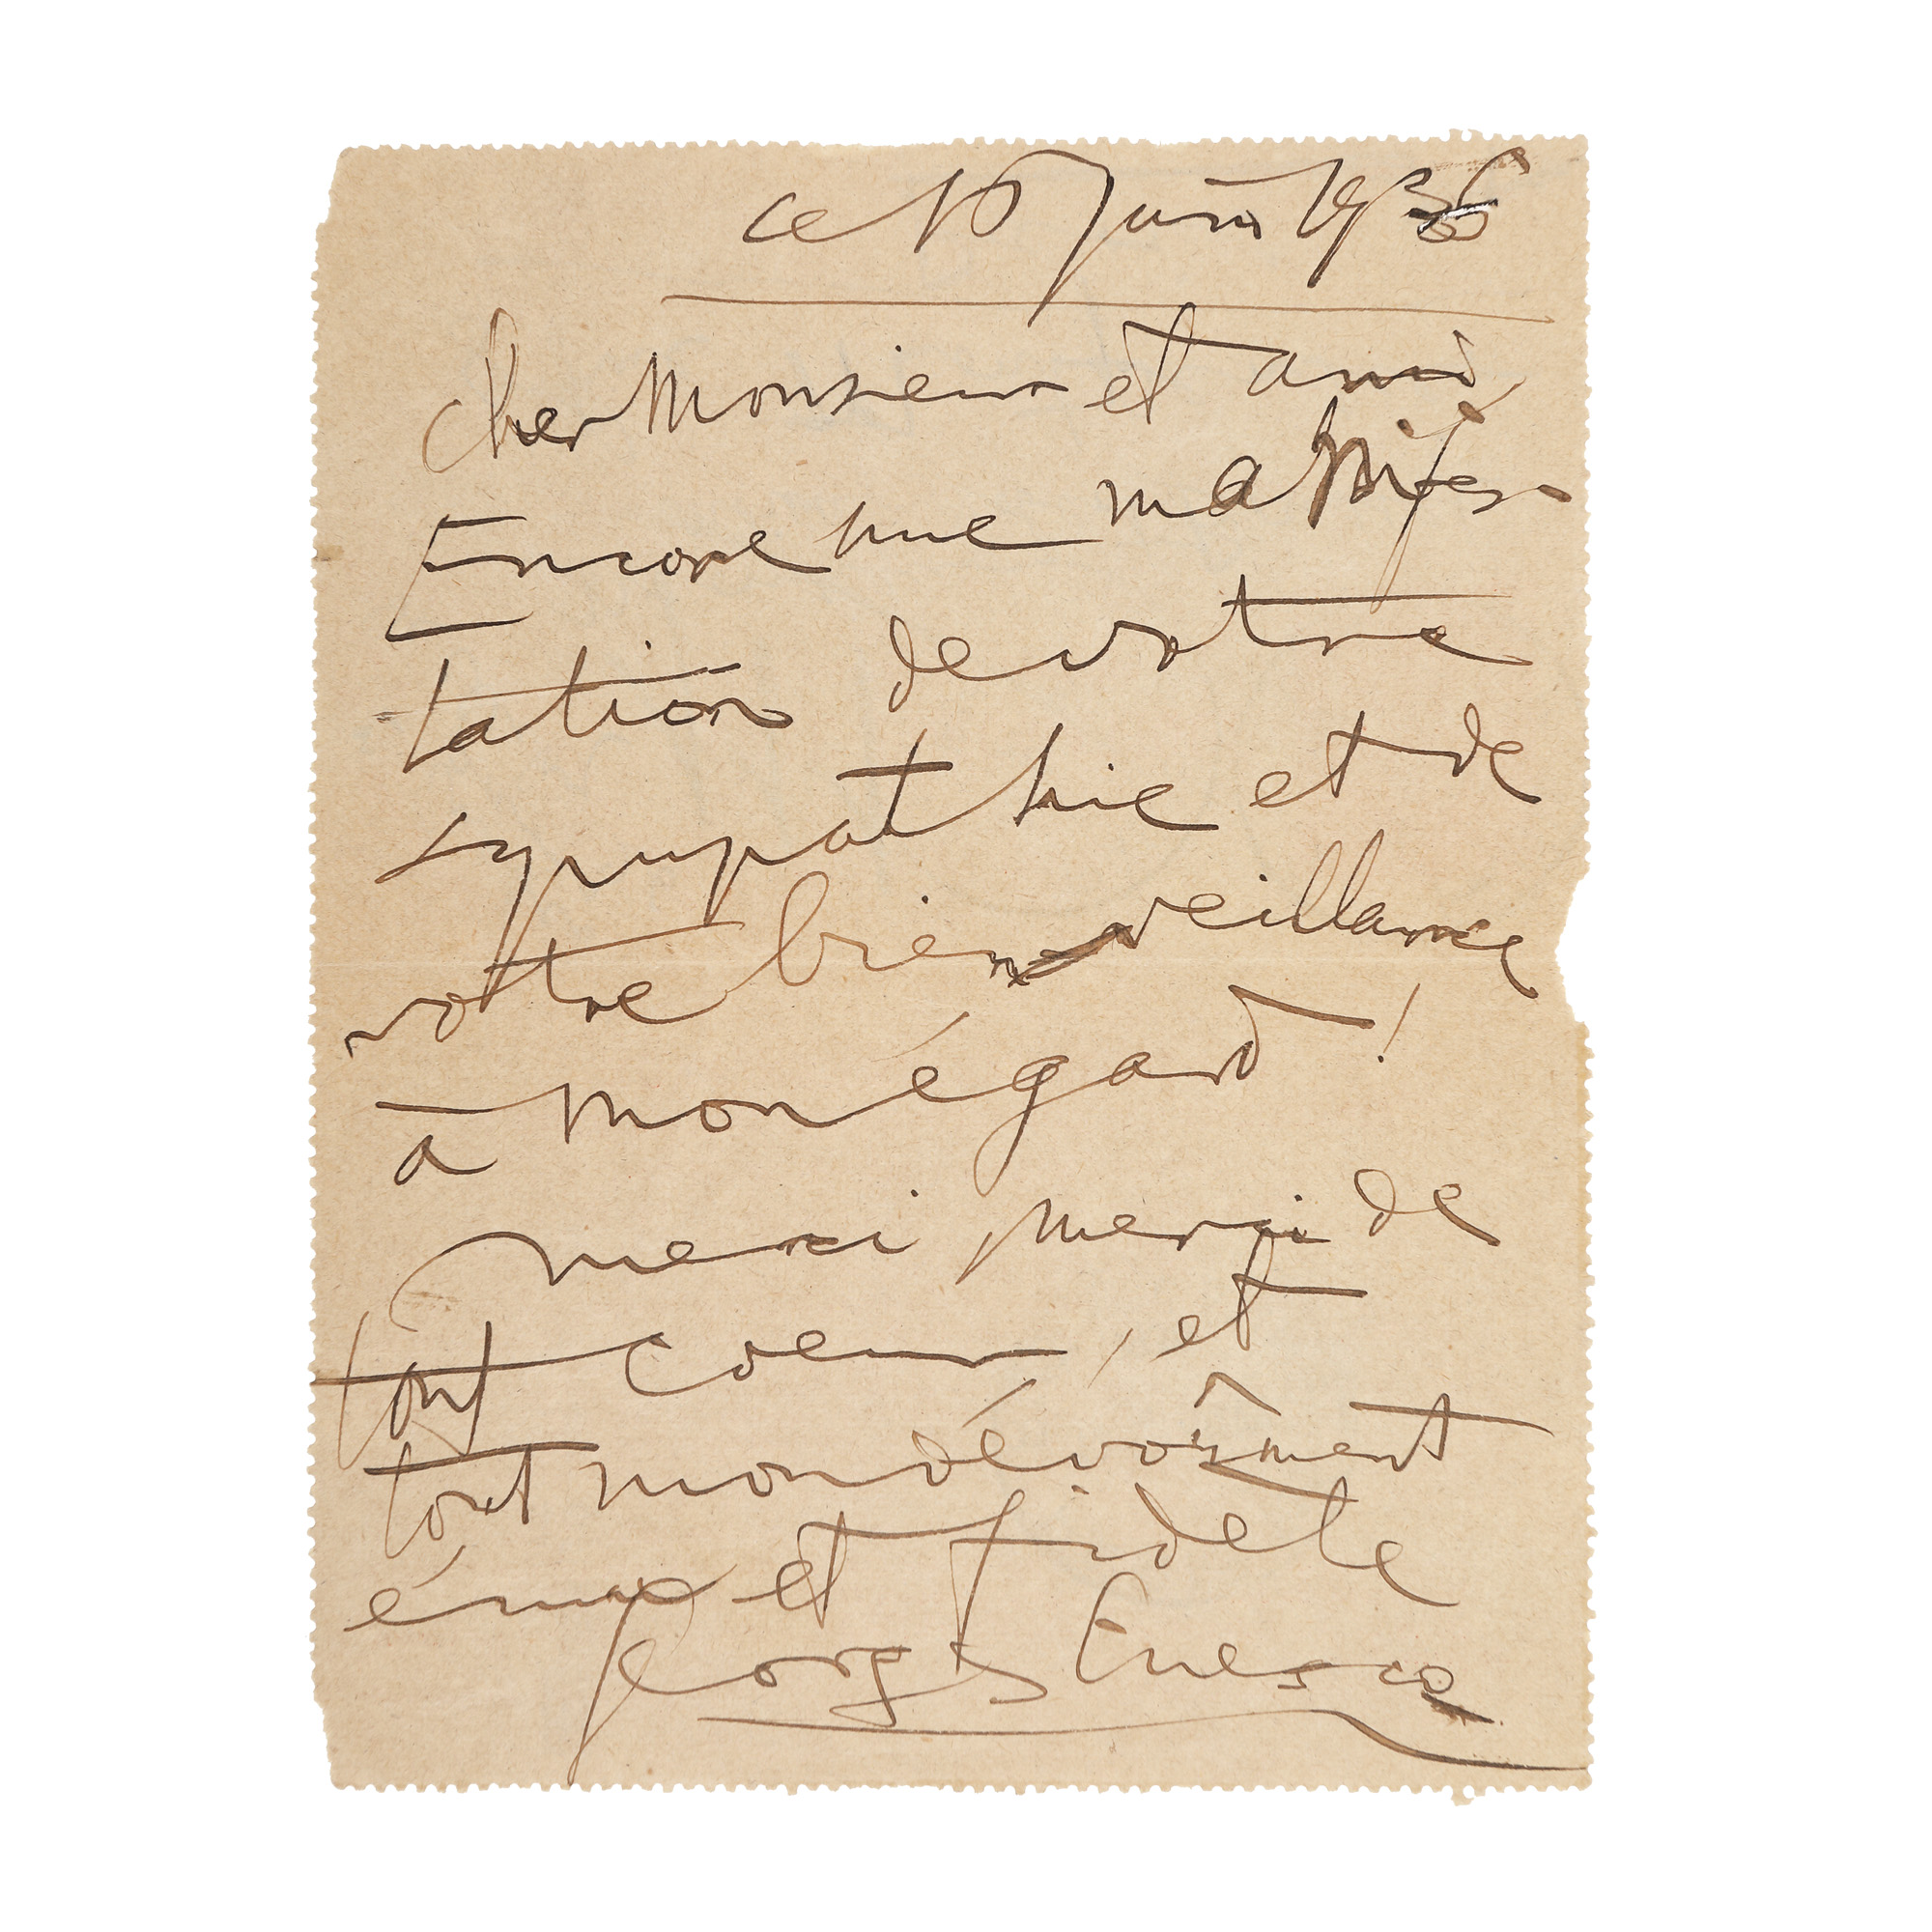 ce 10 Juin 1936
Cher Monsieur et ami,
Encore une manifes-
tation de votre
sympathie et de
votre bienveillance
à mon égard !
Merci, merci de
tout coeur, et
tout mon dévoûment
ému et fidèle
Georges Enesco